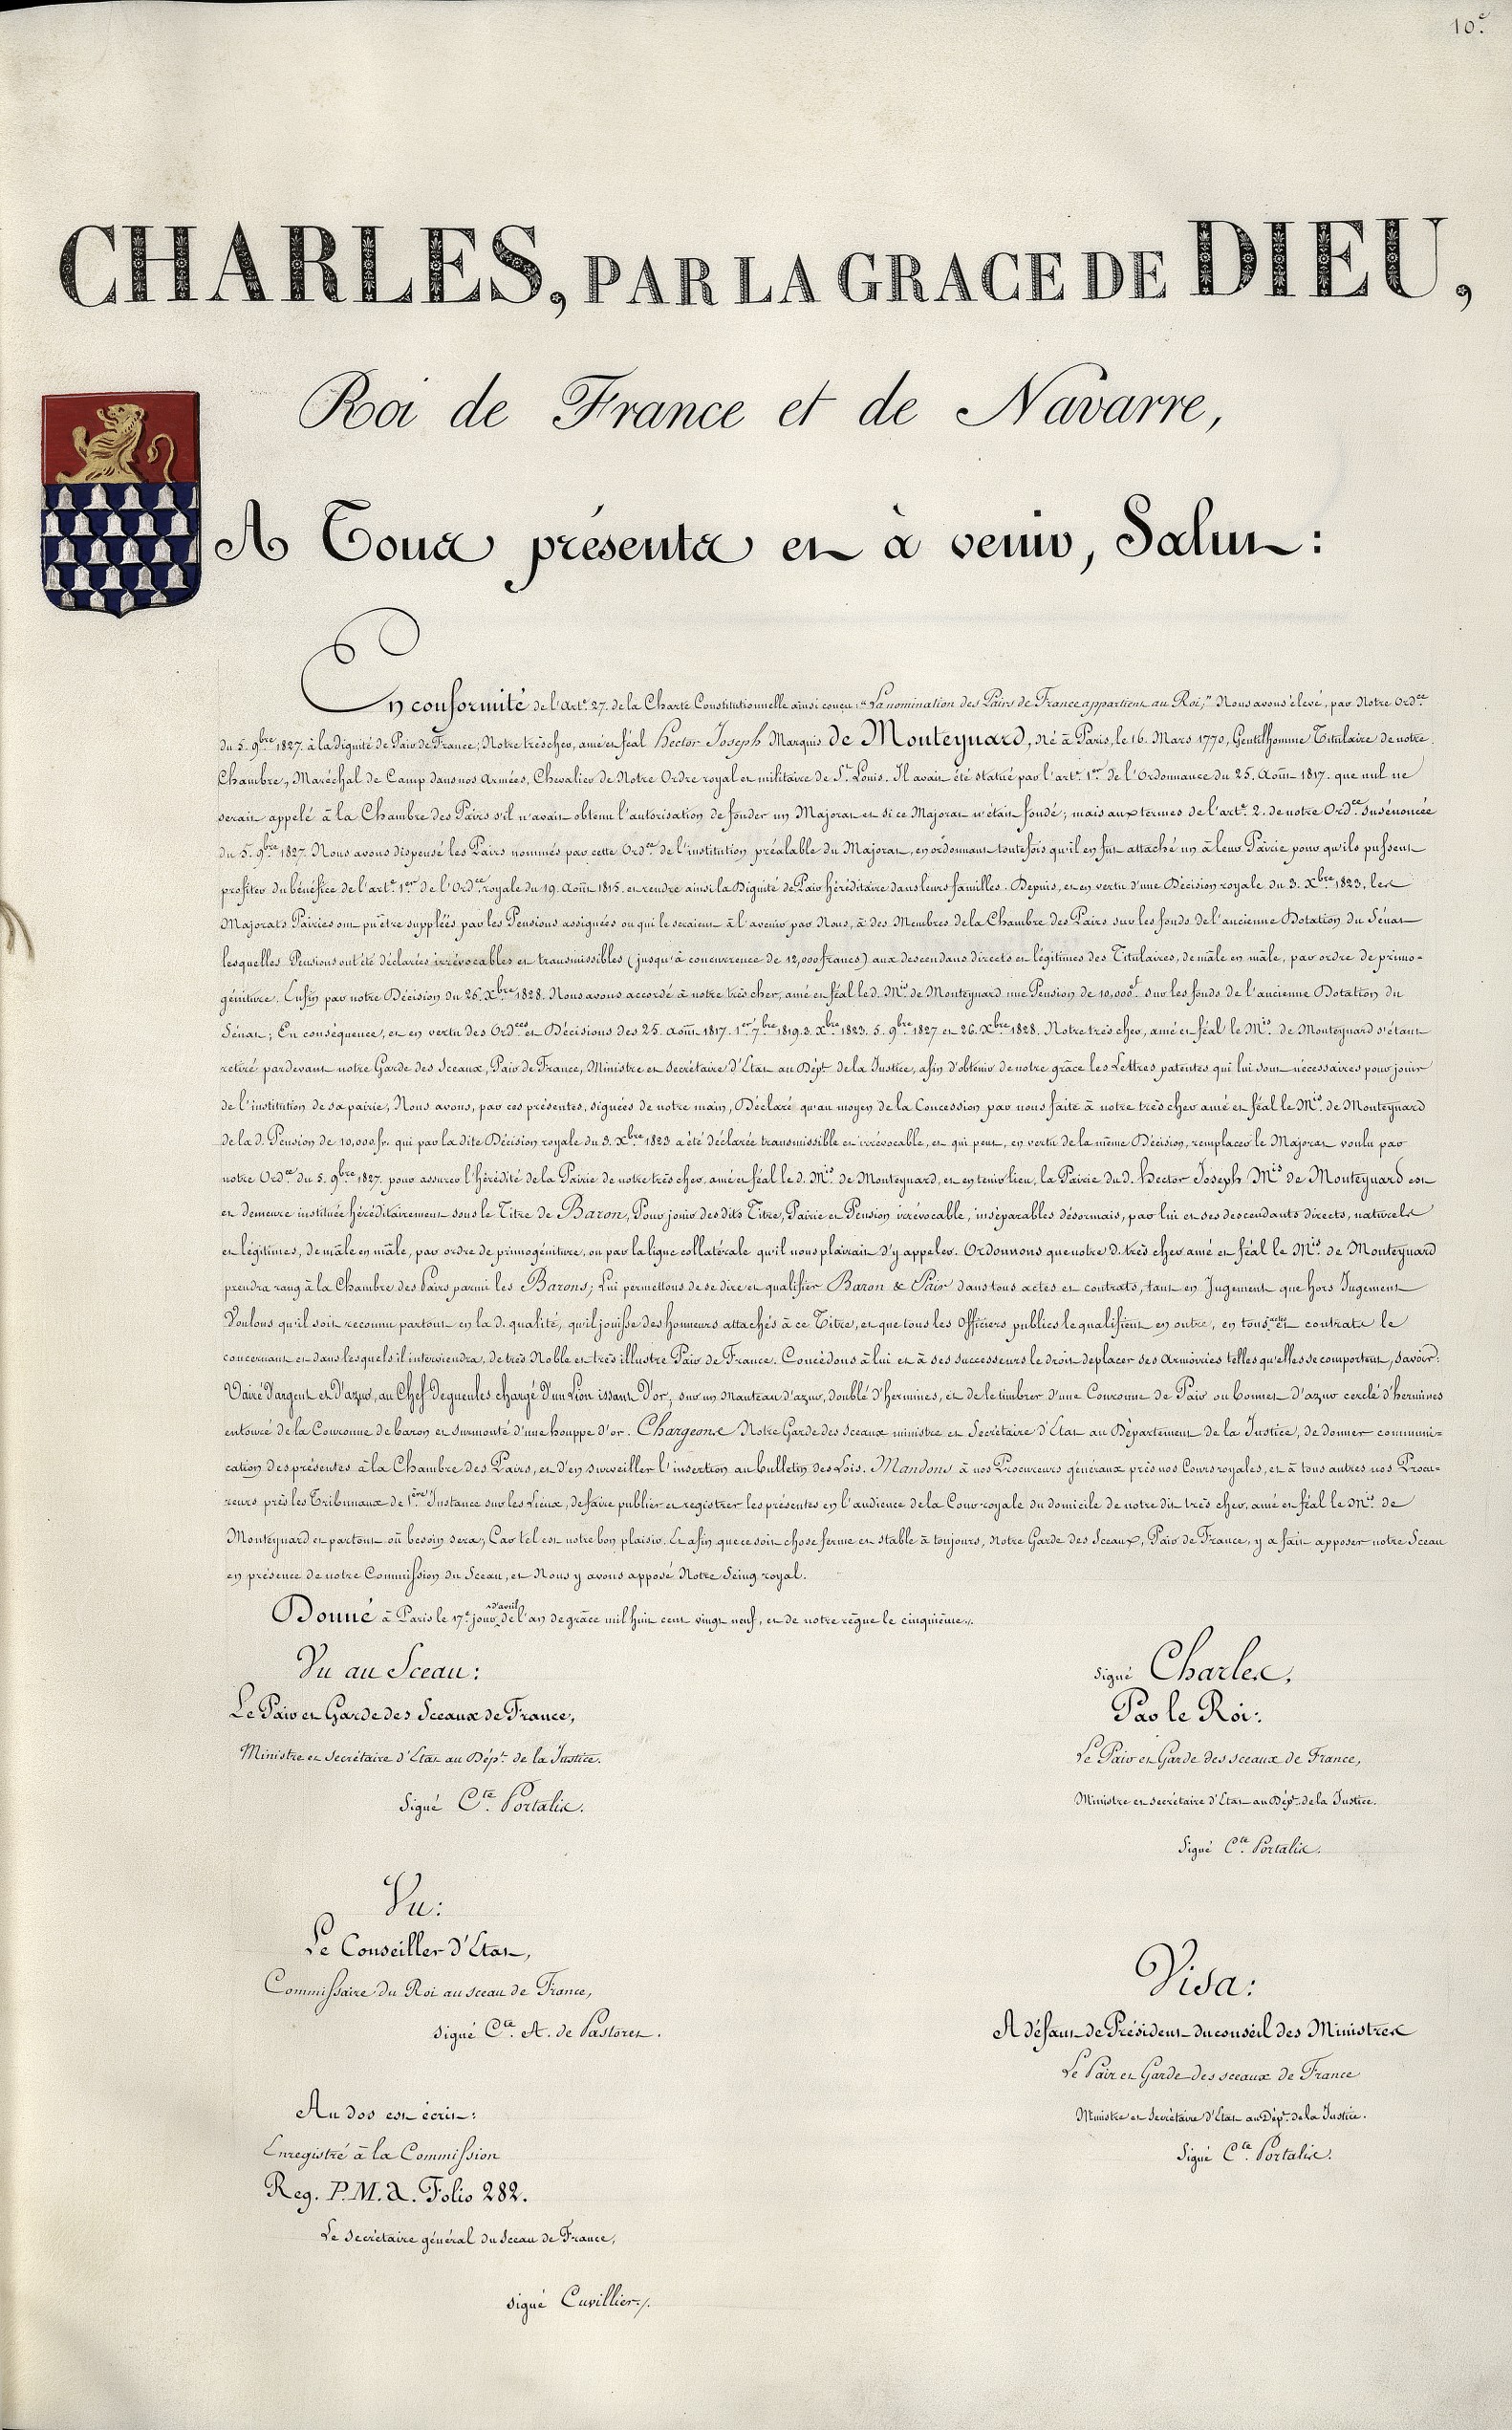 10.e
CHARLES, PAR LA GRACE DE DIEU,
Roi de France et de Navarre,
A Tous présents et à venir, Salut:
En conformité de l'Art.e 27. de la Charte Constitutionnelle ainsi conçu: "La nomination des Pairs de France appartient au Roi;" Nous avons élevé, par Notre Ord.ce
du 5. 9.bre 1827. à la dignité de Pair de France, Notre très cher, amé et féal Hector Joseph Marquis de Monteynard, né à Paris, le 16. Mars 1770, Gentilhomme Titulaire de notre
Chambre, Maréchal de Camp dans nos Armées, Chevalier de Notre Ordre royal et militaire de St. Louis. Il avait été statué par l'art.e 1.er de l'Ordonnance du 25. Août 1817. que nul ne
serait appelé à la Chambre des Pairs s'il n'avait obtenu l'autorisation de fonder un Majorat et si ce Majorat n'était fondé; mais aux termes de l'art.e 2. de notre Ord.ce susénoncée
du 5. 9.bre 1827. Nous avons dispensé les Pairs nommés par cette Ord.ce de l'institution préalable du Majorat, en ordonnant toutefois qu'il en fut attaché un à leur Pairie pour qu'ils pussent
profiter du bénéfice de l'art.e 1.er de l'Ord.ce royale du 19. Août 1815. et rendre ainsi la Dignité de Pair héréditaire dans leurs familles. Depuis, et en vertu d'une Décision royale du 3. X.bre 1823. les
Majorats Pairies ont pu être suppléés par les Pensions assignées ou qui le seraient à l'avenir par Nous, à des Membres de la Chambre des Pairs sur les fonds de l'ancienne Dotation du Sénat
lesquelles Pensions ont été déclarées irrévocables et transmissibles (jusqu'à concurrence de 12,000 francs) aux descendans directs et légitimes des Titulaires, de mâle en mâle, par ordre de primo-
géniture. Enfin par notre Décision du 26. X.bre 1828. Nous avons accordé à notre très cher, amé et féal le d. M.is de Monteynard une Pension de 10,000.f sur les fonds de l'ancienne Dotation du
Sénat; En conséquence, et en vertu des Ord.ces et Décisions des 25. Août 1817. 1.er 7.bre 1819. 3. X.bre 1823. 5. 9.bre 1827 et 26. X.bre 1828. Notre très cher, amé et féal le M.is de Monteynard s'étant
retiré pardevant notre Garde des Sceaux, Pair de France, Ministre et Secrétaire d'Etat au Dépt. de la Justice, afin d'obtenir de notre grâce les Lettres patentes qui lui sont nécessaires pour jouir
de l'institution de sa pairie; Nous avons, par ces présentes, signées de notre main, Déclaré qu'au moyen de la Concession par nous faite à notre très cher amé et féal le M.is de Monteynard
de la d. Pension de 10,000 fr. qui par la dite Décision royale du 3. X.bre 1823 a été déclarée transmissible et irrévocable, et qui peut, en vertu de la même Décision, remplacer le Majorat voulu par
notre Ord.ce du 5. 9.bre 1827. pour assurer l'hérédité de la Pairie de notre très cher, amé et féal le d. M.is de Monteynard, et en tenir lieu, la Pairie du d. Hector Joseph M.is de Monteynard est
et demeure instituée héréditairement sous le Titre de Baron, Pour jouir des dits Titre, Pairie et Pension irrévocable, inséparables désormais, par lui et ses descendants directs, naturels
et légitimes, de mâle en mâle, par ordre de primogéniture, ou par la ligne collatérale qu'il nous plairait d'y appeler. Ordonnons que notre d. très cher amé et féal le M.is de Monteynard
prendra rang à la Chambre des Pairs parmi les Barons; Lui permettons de se dire et qualifier Baron & Pair dans tous actes et contrats, tant en Jugement que hors Jugement
Voulons qu'il soit reconnu partout en la d. qualité, qu'il jouisse des honneurs attachés à ce Titre, et que tous les Officiers publics le qualifient en outre, en tous actes et contrats le
concernant et dans lesquels il interviendra, de très Noble et très illustre Pair de France. Concédons à lui et à ses successeurs le droit de placer ses Armoiries telles qu'elles se comportent, savoir:
Vairé d'argent et d'azur, au Chef de gueules chargé d'un Lion issant d'or, sur un Manteau d'azur, doublé d'hermines, et de le timbrer d'une Couronne de Pair ou bonnet d'azur cerclé d'hermines
entouré de la Couronne de baron et surmonté d'une houppe d'or. Chargeons Notre Garde des Sceaux ministre et Secrétaire d'Etat au Département de la Justice, de donner communi-
cation des présentes à la Chambre des Pairs, et d'en surveiller l'insertion au bulletin des Lois. Mandons à nos Procureurs généraux près nos Cours royales, et à tous autres nos Procu-
reurs près les Tribunaux de 1.ère Instance sur les Lieux, de faire publier et registrer les présentes en l'audience de la Cour royale du domicile de notre dit très cher, amé et féal le M.is de
Monteynard et partout où besoin sera; Car tel est notre bon plaisir. Et afin que ce soit chose ferme et stable à toujours, Notre Garde des Sceaux, Pair de France, y a fait apposer notre Sceau
en présence de notre Commission du Sceau, et Nous y avons apposé Notre Seing royal.
Donné à Paris le 17.e jour d'avril de l'an de grâce mil huit cent vingt neuf, et de notre règne le cinquième.
Vu au Sceau:
Le Pair et Garde des Sceaux de France,
Ministre et Secrétaire d'Etat au Dépt. de la Justice.
Signé C.te Portalis.
signé Charles,
Par le Roi:
Le Pair et Garde des sceaux de France,
Ministre et secrétaire d'Etat au Dépt. de la Justice.
Signé C.te Portalis.
Vu:
Le Conseiller d'Etat,
Commissaire du Roi au sceau de France,
signé C.te A. de Pastoret.
Visa:
A défaut de Président du conseil des Ministres
Le Pair et Garde des sceaux de France
Ministre et Secrétaire d'Etat au Dépt. de la Justice.
Signé C.te Portalis.
Au dos est écrit:
Enregistré à la Commission
Reg. P.M. 2. Folio 282.
Le secrétaire général du Sceau de France,
signé Cuvillier./.